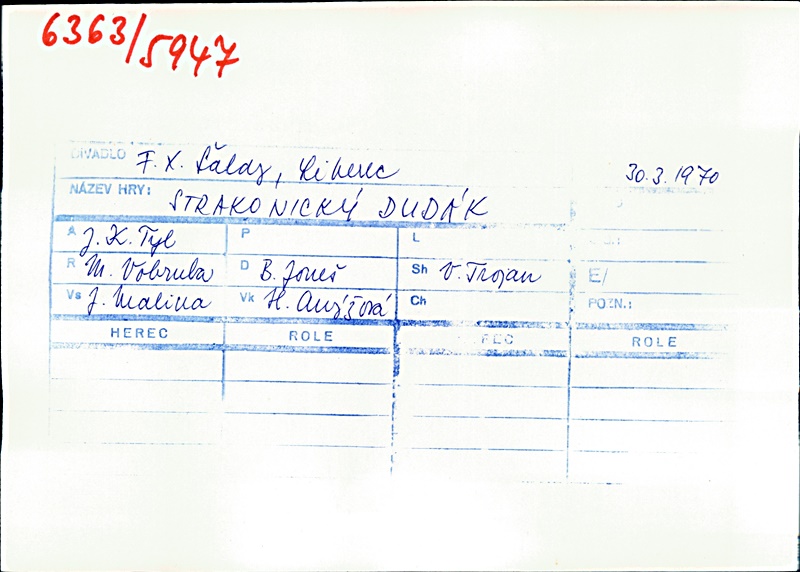 6363/5947
DIVADLO F. X. Šaldy, Liberec 30.3.1970
NÁZEV HRY: STRAKONICKÝ DUDÁK
A J. K. Tyl P L
R M. Vobruba D B. Joneš Sh V. Trojan E/
Vs J. Malina Vk H. Anýžová Ch POZN.:
HEREC ROLE REC ROLE